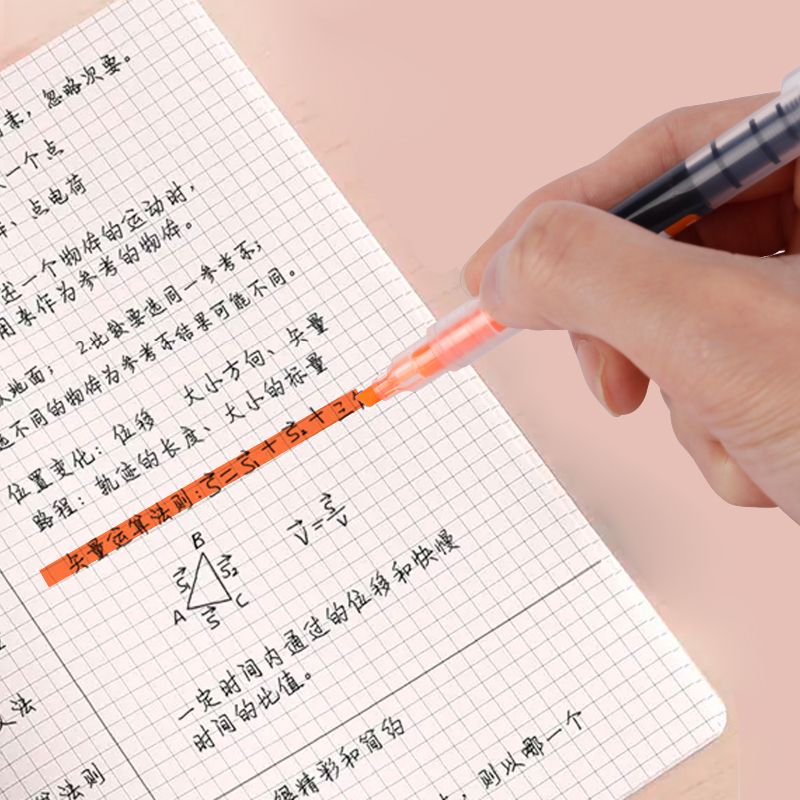 素，忽略次要。
一个点
点电荷
述一个物体的运动时，
用来作为参考的物体。
地面； 2.比较要选同一参考系；
选不同的物体为参考系结果可能不同。
位置变化：位移 大小方向、矢量
路程：轨迹的长度、大小的标量
矢量运算法则：S⃗=S⃗₁+S⃗₂+三
B
S⃗₁ S⃗₂
A S⃗ C
V⃗=S⃗/V
一定时间内通过的位移和快慢
时间的比值。
法
法则
很精彩和简约
，则以哪一个